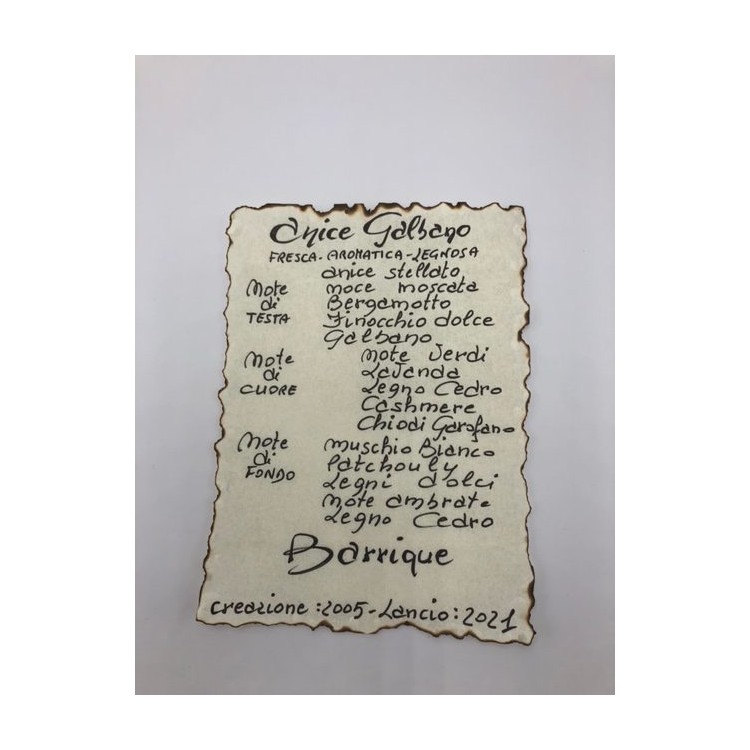 Anice Galbano
FRESCA - AROMATICA - LEGNOSA
Note di TESTA
anice stellato
noce moscata
Bergamotto
Finocchio dolce
Galbano
Note di CUORE
Note Verdi
Lavanda
Legno Cedro
Cashmere
Chiodi Garofano
Note di FONDO
Muschio Bianco
Patchouly
Legni dolci
Note ambrate
Legno Cedro
Barrique
Creazione : 2005 - Lancio : 2021